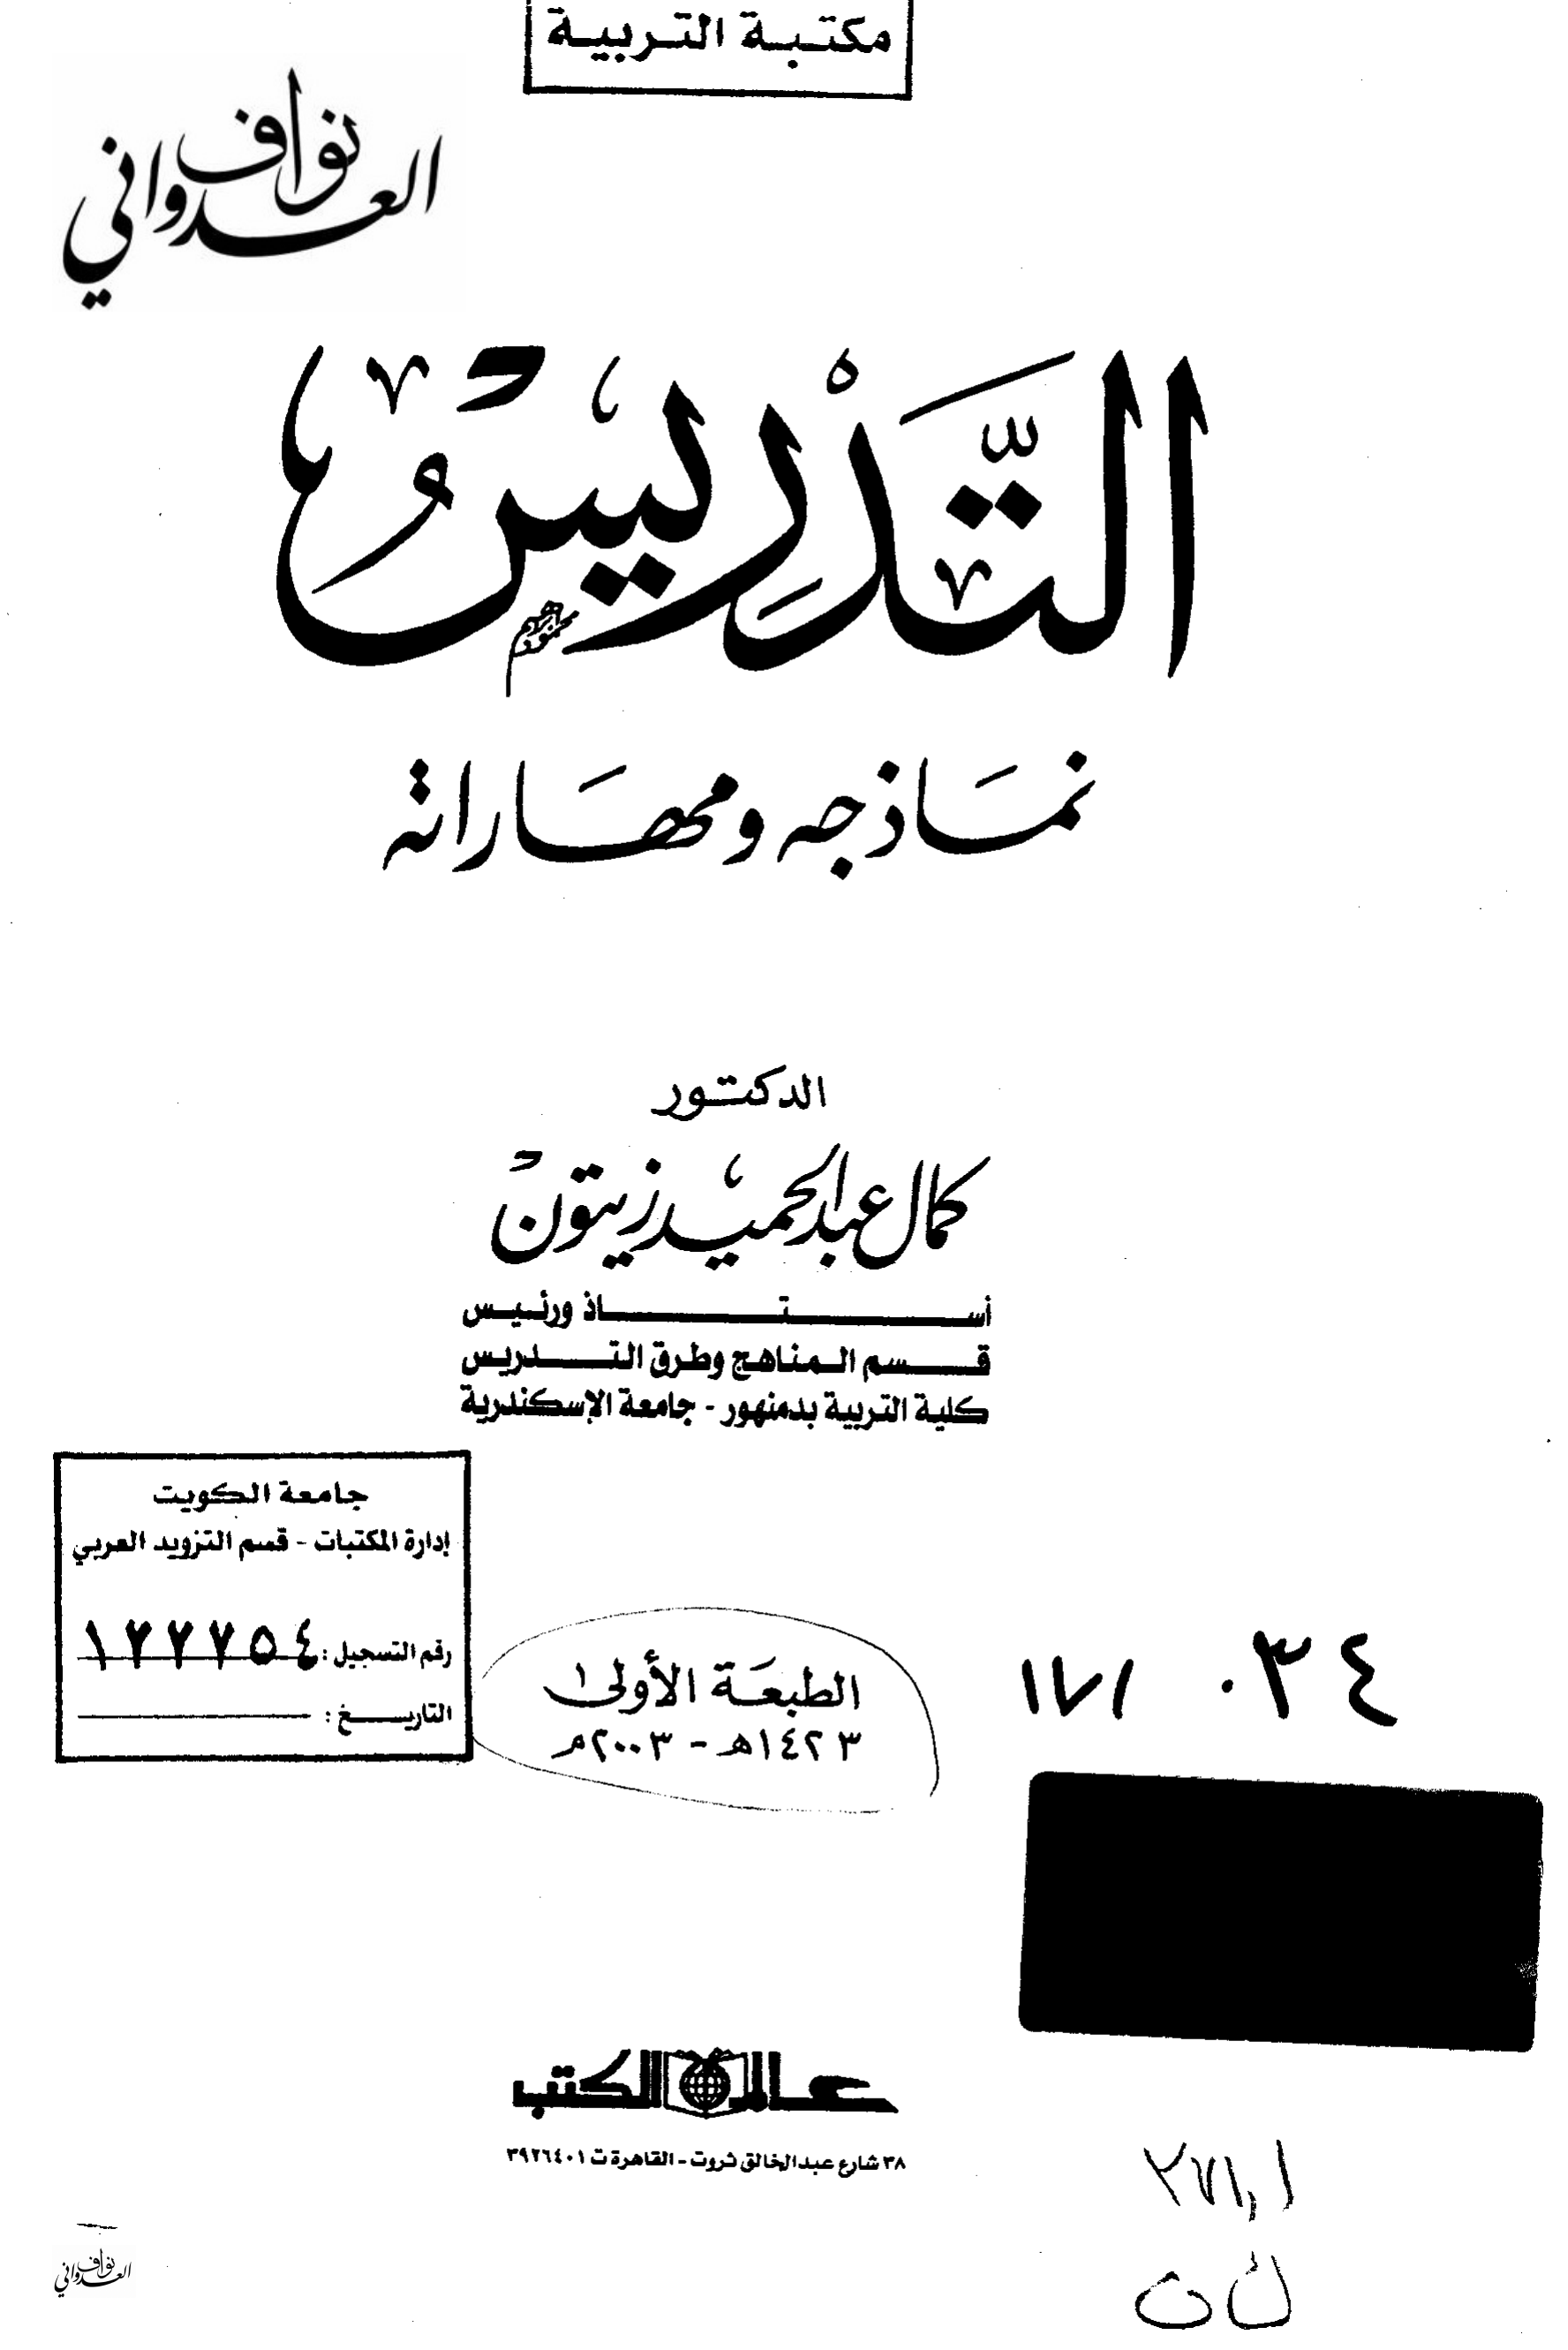 مكتبة التربية
نواف
العدواني
التَّدْرِيسُ
نماذجه ومهاراته
الدكتور
كمال عبد الحميد زيتون
أستاذ ورئيس
قسم المناهج وطرق التدريس
كلية التربية بدمنهور - جامعة الإسكندرية
جامعة الكويت
إدارة المكتبات - قسم التزويد العربي
رقم التسجيل :
التاريخ :
الطبعَة الأولى
١٤٢٣هـ - ٢٠٠٣م
عالم الكتب
٣٨ شارع عبد الخالق ثروت - القاهرة ت ٣٩٢٦٤٠١
نواف
العدواني